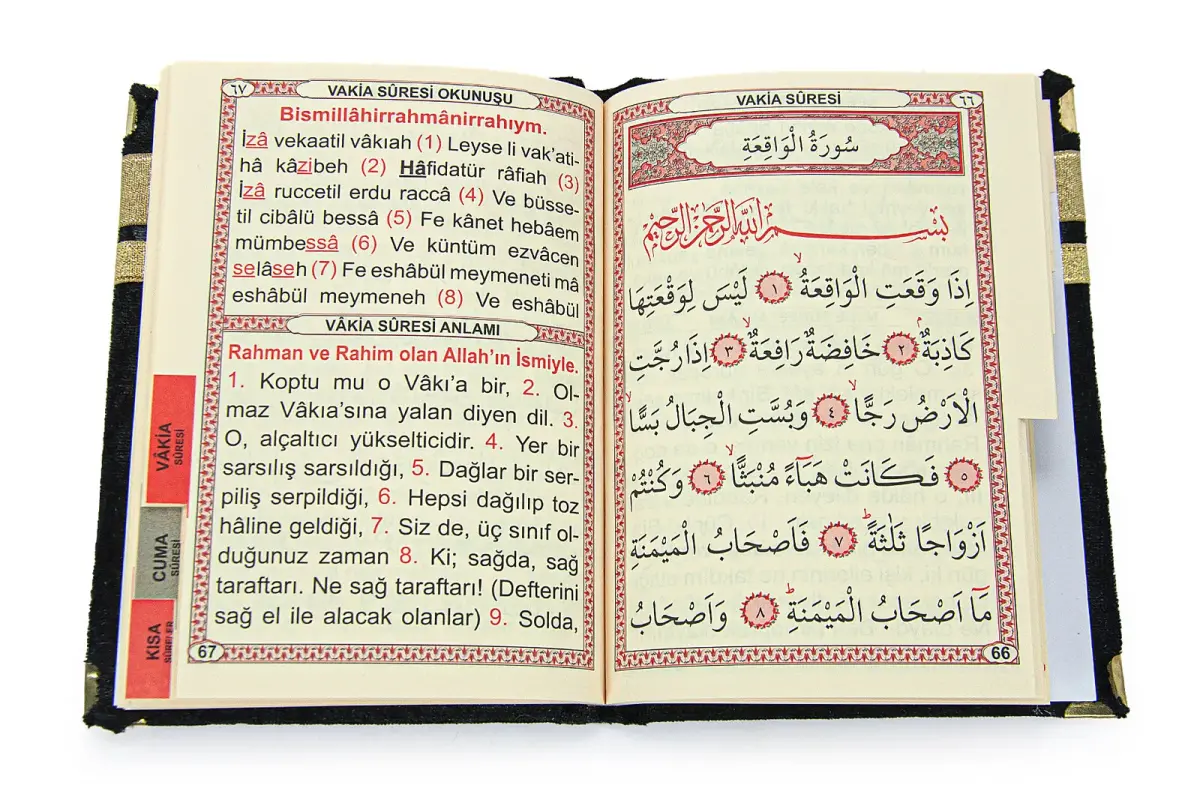 VAKİA SÛRESİ
٦٦
سُورَةُ الْوَاقِعَةِ
بِسْمِ اللّٰهِ الرَّحْمٰنِ الرَّحِيمِ
اِذَا وَقَعَتِ الْوَاقِعَةُ ﴿١﴾ لَيْسَ لِوَقْعَتِهَا
كَاذِبَةٌ ﴿٢﴾ خَافِضَةٌ رَافِعَةٌ ﴿٣﴾ اِذَا رُجَّتِ
الْاَرْضُ رَجًّا ﴿٤﴾ وَبُسَّتِ الْجِبَالُ بَسًّا
﴿٥﴾ فَكَانَتْ هَبَٓاءً مُنْبَثًّا ﴿٦﴾ وَكُنْتُمْ
اَزْوَاجًا ثَلٰثَةً ﴿٧﴾ فَاَصْحَابُ الْمَيْمَنَةِ
مَٓا اَصْحَابُ الْمَيْمَنَةِ ﴿٨﴾ وَاَصْحَابُ
66
٦٧
VAKİA SÛRESİ OKUNUŞU
Bismillâhirrahmânirrahıym.
İzâ vekaatil vâkıah (1) Leyse li vak'ati-
hâ kâzibeh (2) Hâfidatür râfiah (3)
İzâ ruccetil erdu raccâ (4) Ve büsse-
til cibâlü bessâ (5) Fe kânet hebâem
mümbessâ (6) Ve küntüm ezvâcen
selâseh (7) Fe eshâbül meymeneti mâ
eshâbül meymeneh (8) Ve eshâbül
VÂKİA SÛRESİ ANLAMI
Rahman ve Rahim olan Allah'ın İsmiyle.
1. Koptu mu o Vâkı'a bir, 2. Ol-
maz Vâkıa'sına yalan diyen dil. 3.
O, alçaltıcı yükselticidir. 4. Yer bir
sarsılış sarsıldığı, 5. Dağlar bir ser-
piliş serpildiği, 6. Hepsi dağılıp toz
hâline geldiği, 7. Siz de, üç sınıf ol-
duğunuz zaman 8. Ki; sağda, sağ
taraftarı. Ne sağ taraftarı! (Defterini
sağ el ile alacak olanlar) 9. Solda,
67
VÂKİA
SÛRESİ
CUMA
SÛRESİ
KISA
SÛRELER